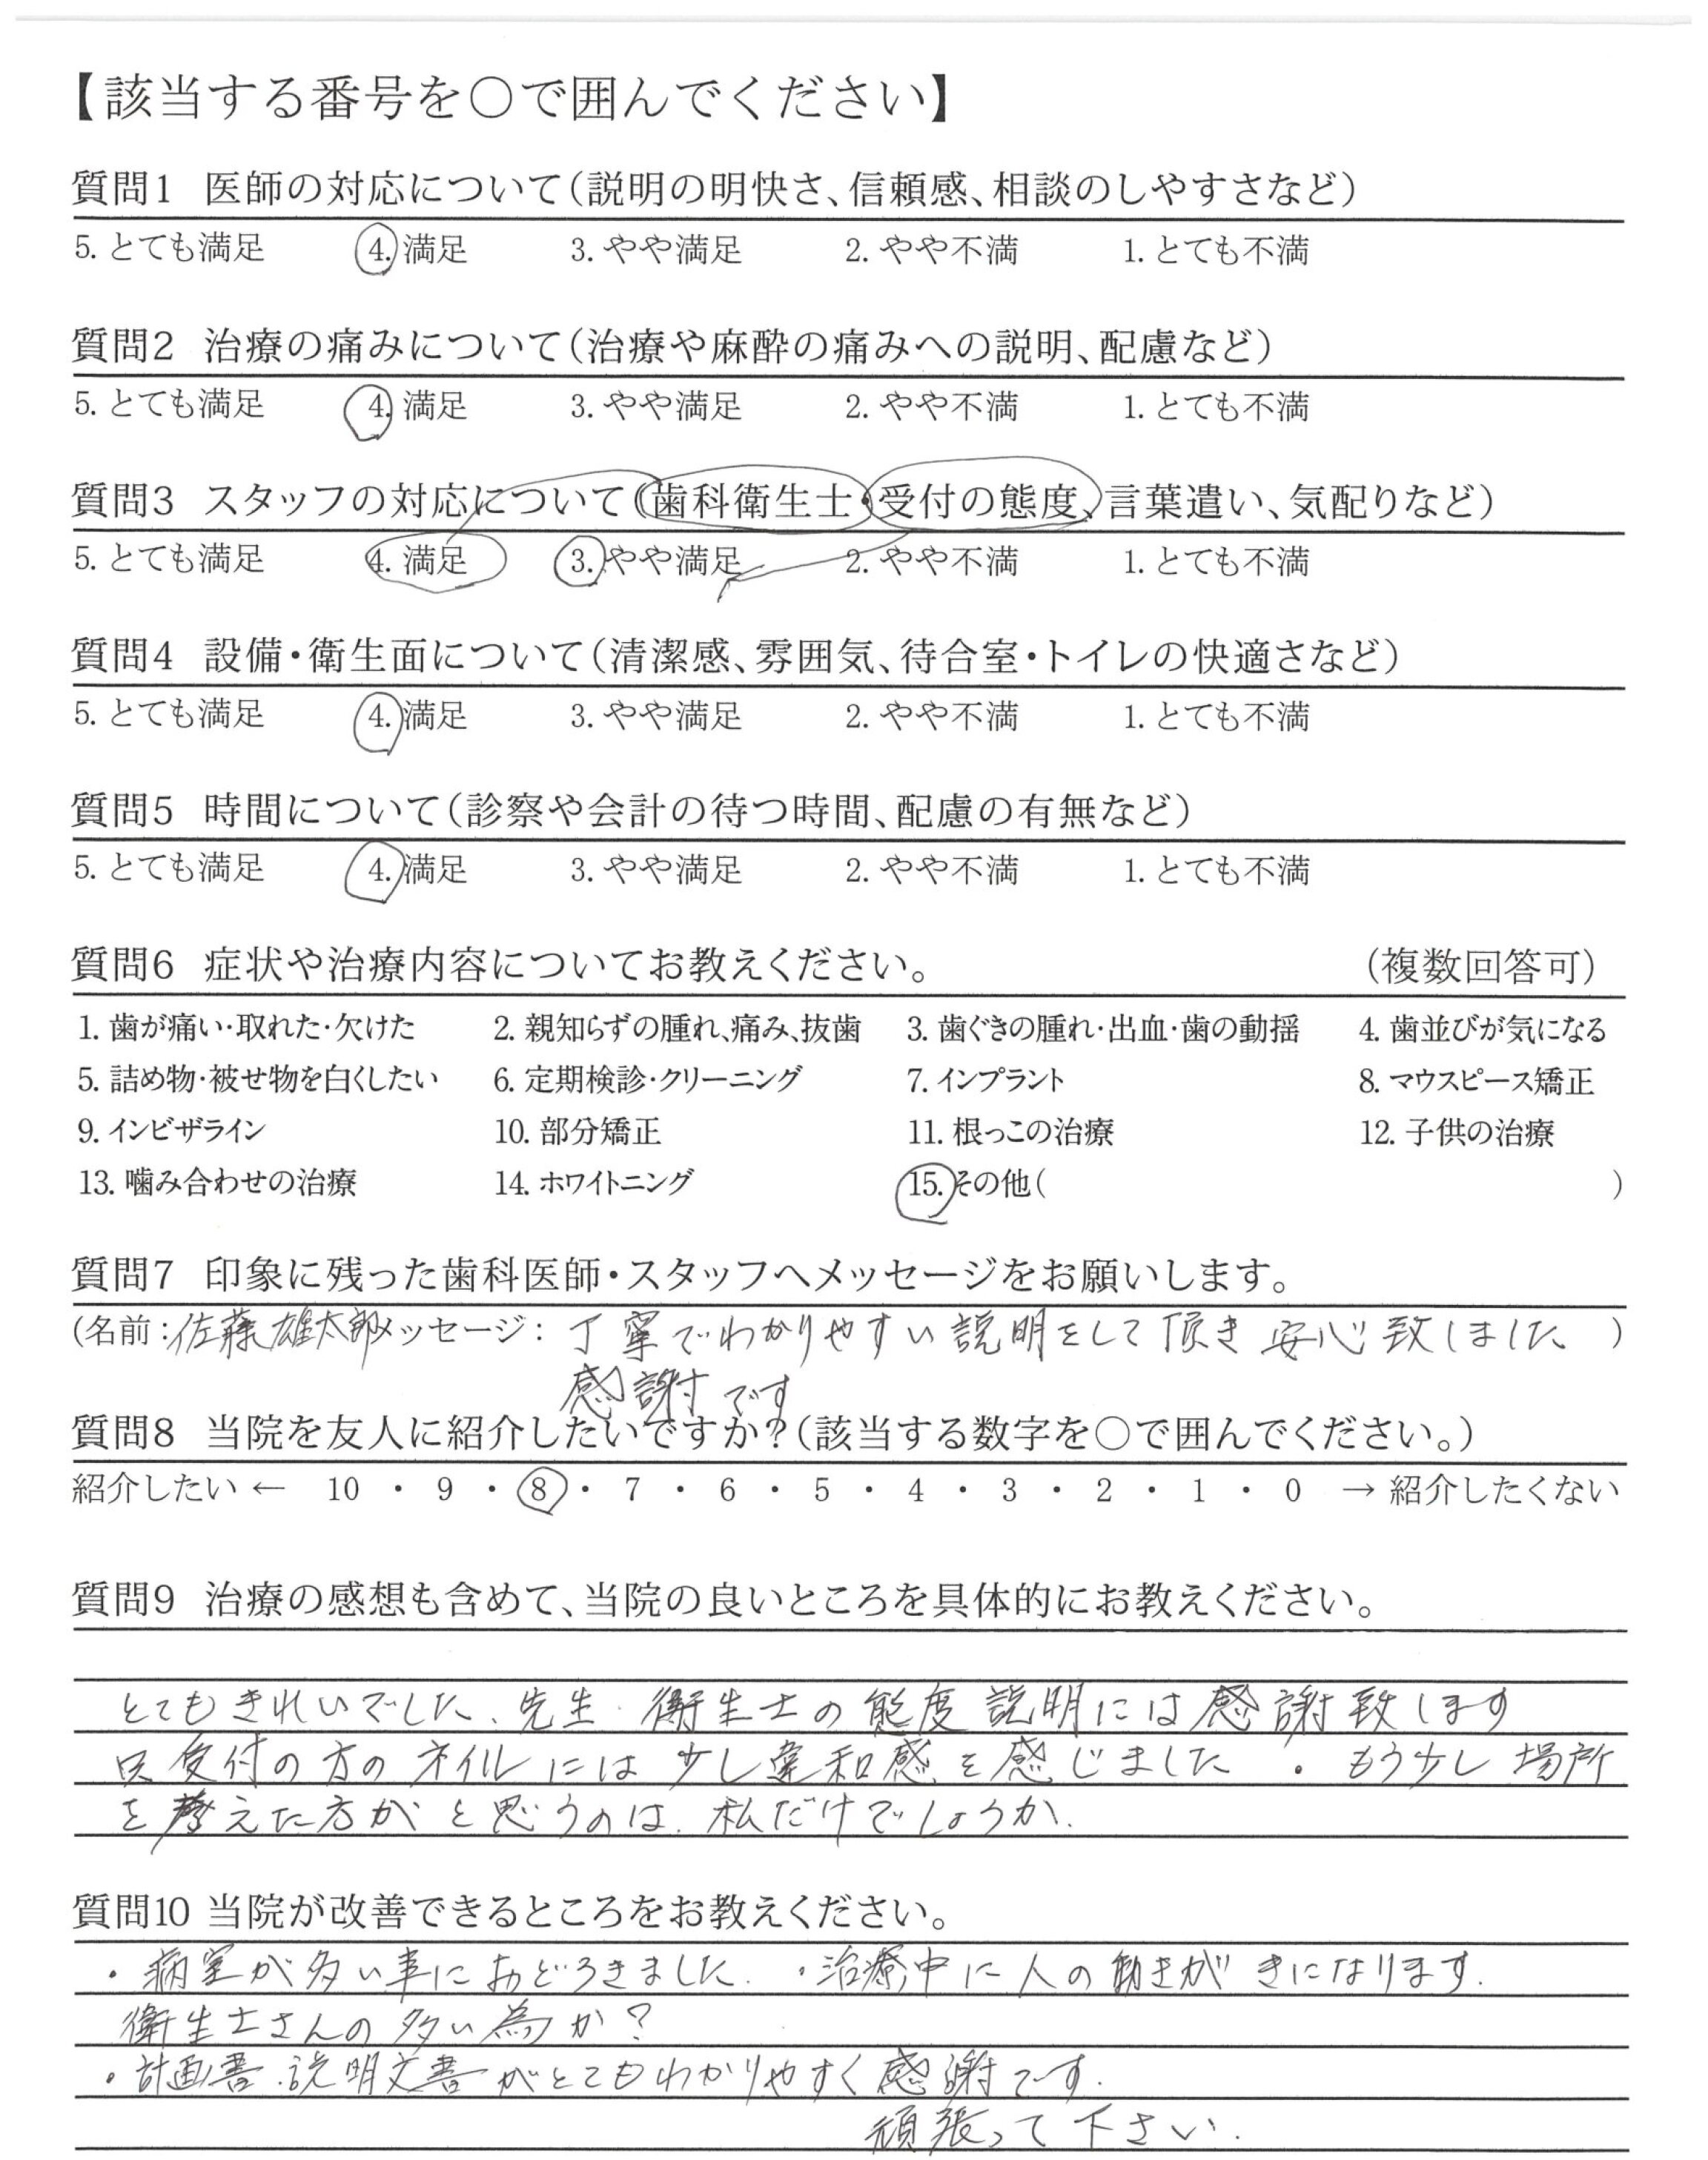 【該当する番号を○で囲んでください】
質問1 医師の対応について(説明の明快さ、信頼感、相談のしやすさなど)
5. とても満足 4. 満足 3. やや満足 2. やや不満 1. とても不満
質問2 治療の痛みについて(治療や麻酔の痛みへの説明、配慮など)
5. とても満足 4. 満足 3. やや満足 2. やや不満 1. とても不満
質問3 スタッフの対応について(歯科衛生士・受付の態度、言葉遣い、気配りなど)
5. とても満足 4. 満足 3. やや満足 2. やや不満 1. とても不満
質問4 設備・衛生面について(清潔感、雰囲気、待合室・トイレの快適さなど)
5. とても満足 4. 満足 3. やや満足 2. やや不満 1. とても不満
質問5 時間について(診察や会計の待つ時間、配慮の有無など)
5. とても満足 4. 満足 3. やや満足 2. やや不満 1. とても不満
質問6 症状や治療内容についてお教えください。 (複数回答可)
1. 歯が痛い・取れた・欠けた 2. 親知らずの腫れ、痛み、抜歯 3. 歯ぐきの腫れ・出血・歯の動揺 4. 歯並びが気になる
5. 詰め物・被せ物を白くしたい 6. 定期検診・クリーニング 7. インプラント 8. マウスピース矯正
9. インビザライン 10. 部分矯正 11. 根っこの治療 12. 子供の治療
13. 噛み合わせの治療 14. ホワイトニング 15. その他( )
質問7 印象に残った歯科医師・スタッフへメッセージをお願いします。
(名前:佐藤雄太郎 メッセージ: 丁寧でわかりやすい説明をして頂き 安心致しました )
感謝です
質問8 当院を友人に紹介したいですか?(該当する数字を○で囲んでください。)
紹介したい ← 10 ・ 9 ・ 8 ・ 7 ・ 6 ・ 5 ・ 4 ・ 3 ・ 2 ・ 1 ・ 0 → 紹介したくない
質問9 治療の感想も含めて、当院の良いところを具体的にお教えください。
とてもきれいでした、先生・衛生士の態度 説明には感謝致します
受付の方のネイルには少し違和感を感じました ・ もう少し 場所
を考えた方がと思うのは、私だけでしょうか.
質問10 当院が改善できるところをお教えください。
・病室が多い事におどろきました. ・治療中に人の動きがきになります.
衛生士さんの多い為か?
・計画書.説明文書がとてもわかりやすく感謝です.
頑張って下さい.